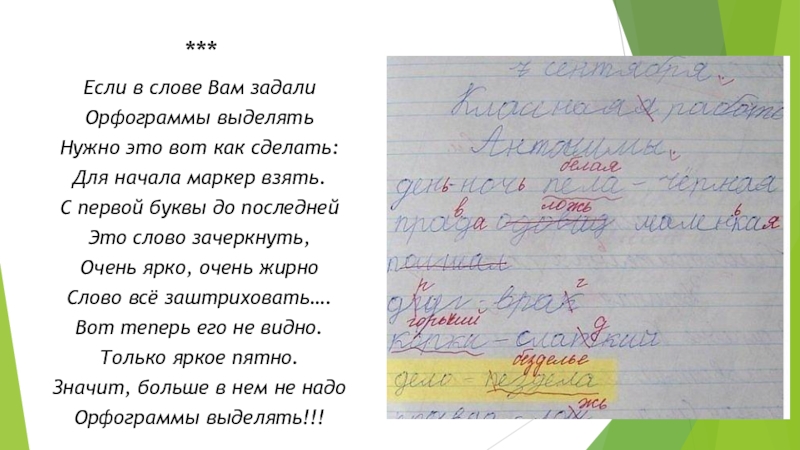 ***
Если в слове Вам задали
Орфограммы выделять
Нужно это вот как сделать:
Для начала маркер взять.
С первой буквы до последней
Это слово зачеркнуть,
Очень ярко, очень жирно
Слово всё заштриховать....
Вот теперь его не видно.
Только яркое пятно.
Значит, больше в нем не надо
Орфограммы выделять!!!
7 сентября.
Классная работа
Антонимы.
белая
день-ночь пела - чёрная
в ложь ь
прада маленкая
р г
друг - врак
горький д
коржи - слаткий
безделье
дело - пездела
жь